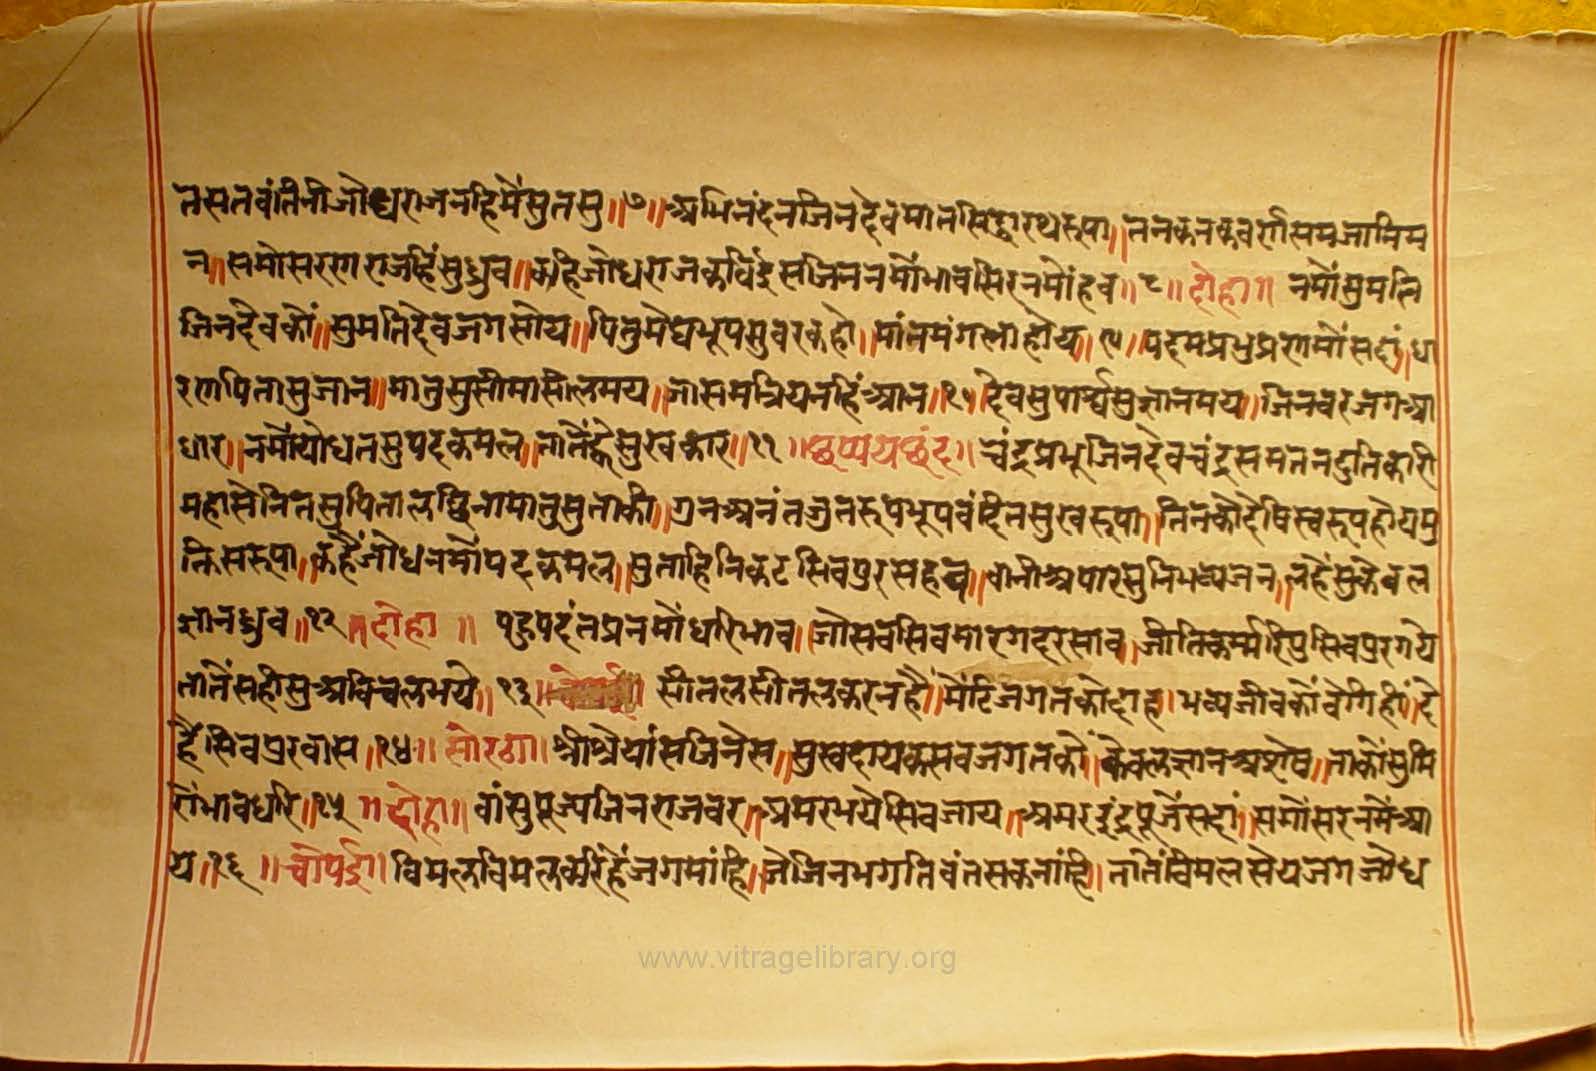 तसतवंतिनीजोधराजनहिमैंसुतसु॥७॥अभिनंदनजिनदेवमातसिद्धारथरूपा॥तनकनकवर्णसमजानिम
न॥समोसरणराजहिंसुध्रुव॥कहिजोधराजकविईसजिननमौंभावसिरनमौंहव॥८॥दोहा॥ नमौंसुमति
जिनदेवकौं॥सुमतिदेवजगसोय॥पितुमेघभूपसुवरकहो॥मातमंगलाहोय॥९॥पदमप्रभुप्रणमौंसदां॥धा
रणपितासुजान॥मातुसुसीमासीलमय॥जासमत्रियनहिंआन॥१०॥देवसुपार्श्वसुज्ञानमय॥जिनवरजगआ
धार॥नमौंयोधतसुपदकमल॥तातैंह्वैसुखकार॥११॥छप्पयछंद॥चंद्रप्रभूजिनदेवचंद्रसमतनदुतिकारी
महासेनितसुपितालछिनामातुसुताकी॥गुनअनंतजुतरूपभूपवंदितसुखरूपा॥तिनकौदेषिस्वरूपहोयमु
क्तिसरूपा॥कहैंजोधनमौंपदकमल॥सुताहिनिकटसिवपुरसहव॥वानीअपारसुनिभव्यजन॥लहैंसुकेवल
ज्ञानध्रुव॥१२॥दोहा॥ पहुपदंतप्रनमौंधरिभाव॥जोसवसिवमारगदरसाव॥जीतिकर्म्मरिपुसिवपुरगये
तातैंसहीसुअविचलभये॥१३॥ सीतलसीतलकरनहैं॥मेटिजगतकोदाह॥भव्यजीवकौंवेगिहीं॥दे
हैंसिवपुरवास॥१४॥सोरठा॥श्रीश्रेयांसजिनेस॥सुखदायकसवजगतकौं॥केवलज्ञानअशेष॥ताकौंसुमि
रौंभावधरि॥१५॥दोहा॥वांसुपूज्यजिनराजवर॥अमरभयेसिवजाय॥अमरइंद्रपूजैंसदां॥समोंसरनमैंआ
य॥१६॥चौपई॥विमलविमलकरिहैंजगमांहि॥जेजिनभगतिवंतसकनांहि॥तातैंविमलसेयजगजोध
www.vitragelibrary.org